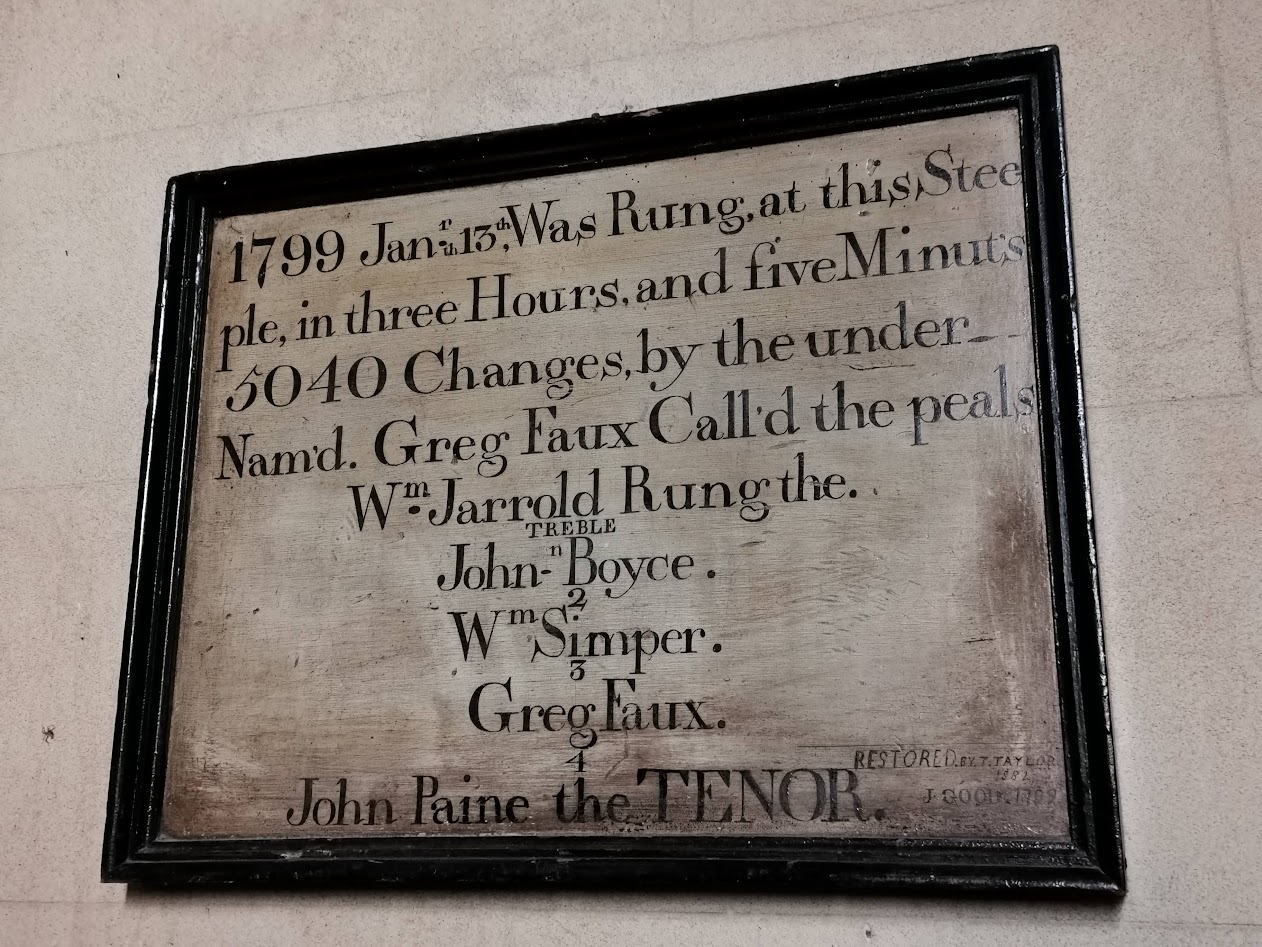 1799 Jan.ry 13th, Was Rung, at this Stee
ple, in three Hours, and five Minuts
5040 Changes, by the under--
Nam'd. Greg Faux Call'd the peals
Wm. Jarrold Rung the.
TREBLE
John-n Boyce.
2
Wm Simper.
3
Greg Faux.
4
John Paine the TENOR.
RESTORED. BY. T. TAYLOR
1882